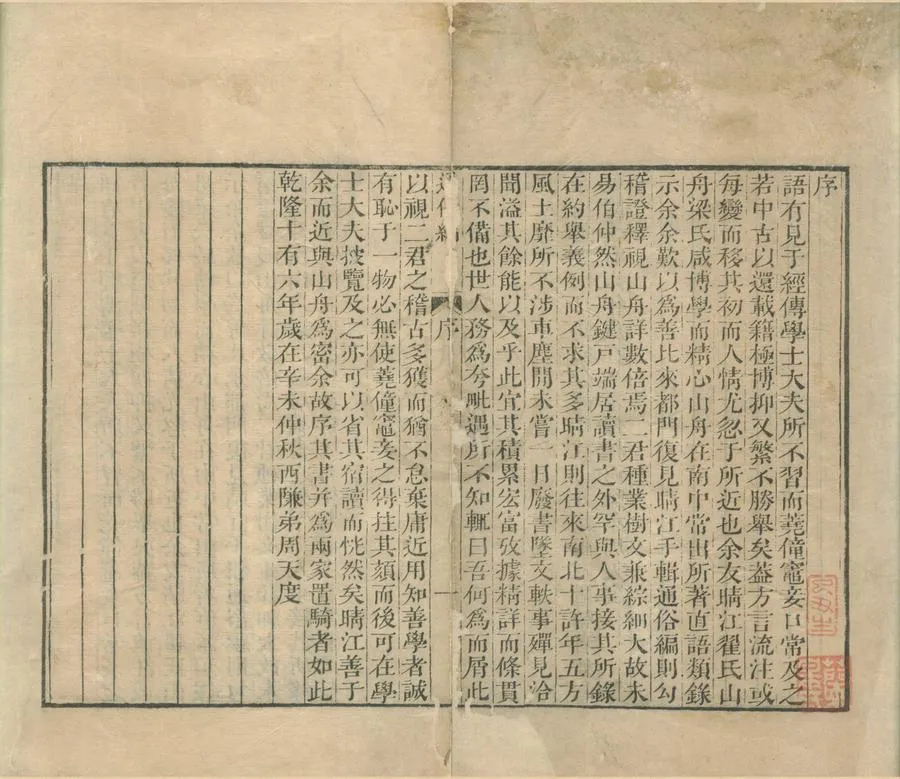 序
語有見于經傳學士大夫所不習而蕘僮竈妾口常及之
若中古以還載籍極博抑又繁不勝舉矣葢方言流注或
每變而移其初而人情尤忽于所近也余友晴江翟氏山
舟梁氏咸博學而精心山舟在南中常出所著直語類錄
示余余歎以爲善比來都門復見晴江手輯通俗編則勾
稽證釋視山舟詳數倍焉二君種業樹文兼綜細大故未
易伯仲然山舟鍵戸端居讀書之外罕與人事接其所錄
在約舉義例而不求其多晴江則往來南北十許年五方
風土靡所不涉車塵閒未嘗一日廢書墜文軼事殫見洽
聞溢其餘能以及乎此宜其積累宏富攷據精詳而條貫
罔不備也世人務爲夸毗遇所不知輒曰吾何爲而屑此
通俗編
序
一
以視二君之稽古多獲而猶不怠棄庸近用知善學者誠
有恥于一物必無使蕘僮竈妾之得拄其頦而後可在學
士大夫披覽及之亦可以省其宿讀而恍然矣晴江善于
余而近與山舟爲密余故序其書并爲兩家置騎者如此
乾隆十有六年歲在辛未仲秋西隒弟周天度